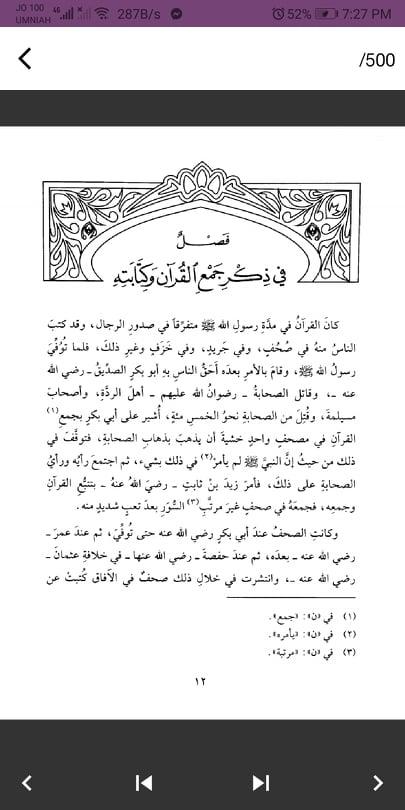 JO 100
UMNIAH
4G
287B/s
52%
7:27 PM
/500
فَصْلٌ
فِي ذِكْرِ جَمْعِ القُرْآنِ وَكِتَابَتِهِ
كانَ القرآنُ في مدَّةِ رسولِ الله ﷺ متفرِّقاً في صدورِ الرجال، وقد كتبَ
الناسُ منهُ في صُحُفٍ، وفي جَريدٍ، وفي خَزَفٍ وغيرِ ذلكَ، فلما تُوُفِّيَ
رسولُ الله ﷺ، وقامَ بالأمرِ بعدَه أَحَقُّ الناسِ بهِ أبو بكرٍ الصدِّيقُ ـ رضي الله
عنه ـ، وقاتل الصحابةُ ـ رضوانُ الله عليهم ـ أهلَ الردَّةِ، وأصحابَ
مسيلمةَ، وقُتِلَ من الصحابةِ نحوُ الخمسِ مئةٍ، أُشير على أبي بكرٍ بجمعِ(١)
القرآنِ في مصحفٍ واحدٍ خشيةَ أن يذهبَ بذهابِ الصحابةِ، فتوقَّفَ في
ذلك من حيثُ إنَّ النبيَّ ﷺ لم يأمرْ(٢) في ذلك بشيء، ثم اجتمعَ رأيُه ورأيُ
الصحابةِ على ذلكَ، فأمرَ زيدَ بنَ ثابتٍ ـ رضيَ اللهُ عنهُ ـ بتتبُّعِ القرآنِ
وجمعِه، فجمعَهُ في صحفٍ غيرَ مرتَّبِ(٣) السُّوَرِ بعدَ تعبٍ شديدٍ منه.
وكانتِ الصحفُ عندَ أبي بكرٍ رضي الله عنه حتى تُوفِّيَ، ثم عندَ عمرَ ـ
رضي الله عنه ـ بعدَه، ثم عندَ حفصةَ ـ رضي الله عنها ـ في خلافةِ عثمانَ ـ
رضي الله عنه ـ، وانتشرت في خلالِ ذلك صحفٌ في الآفاقِ كُتبتْ عن
(١) في «ن»: «جمع».
(٢) في «ن»: «يأمره».
(٣) في «ن»: «مرتبة».
١٢